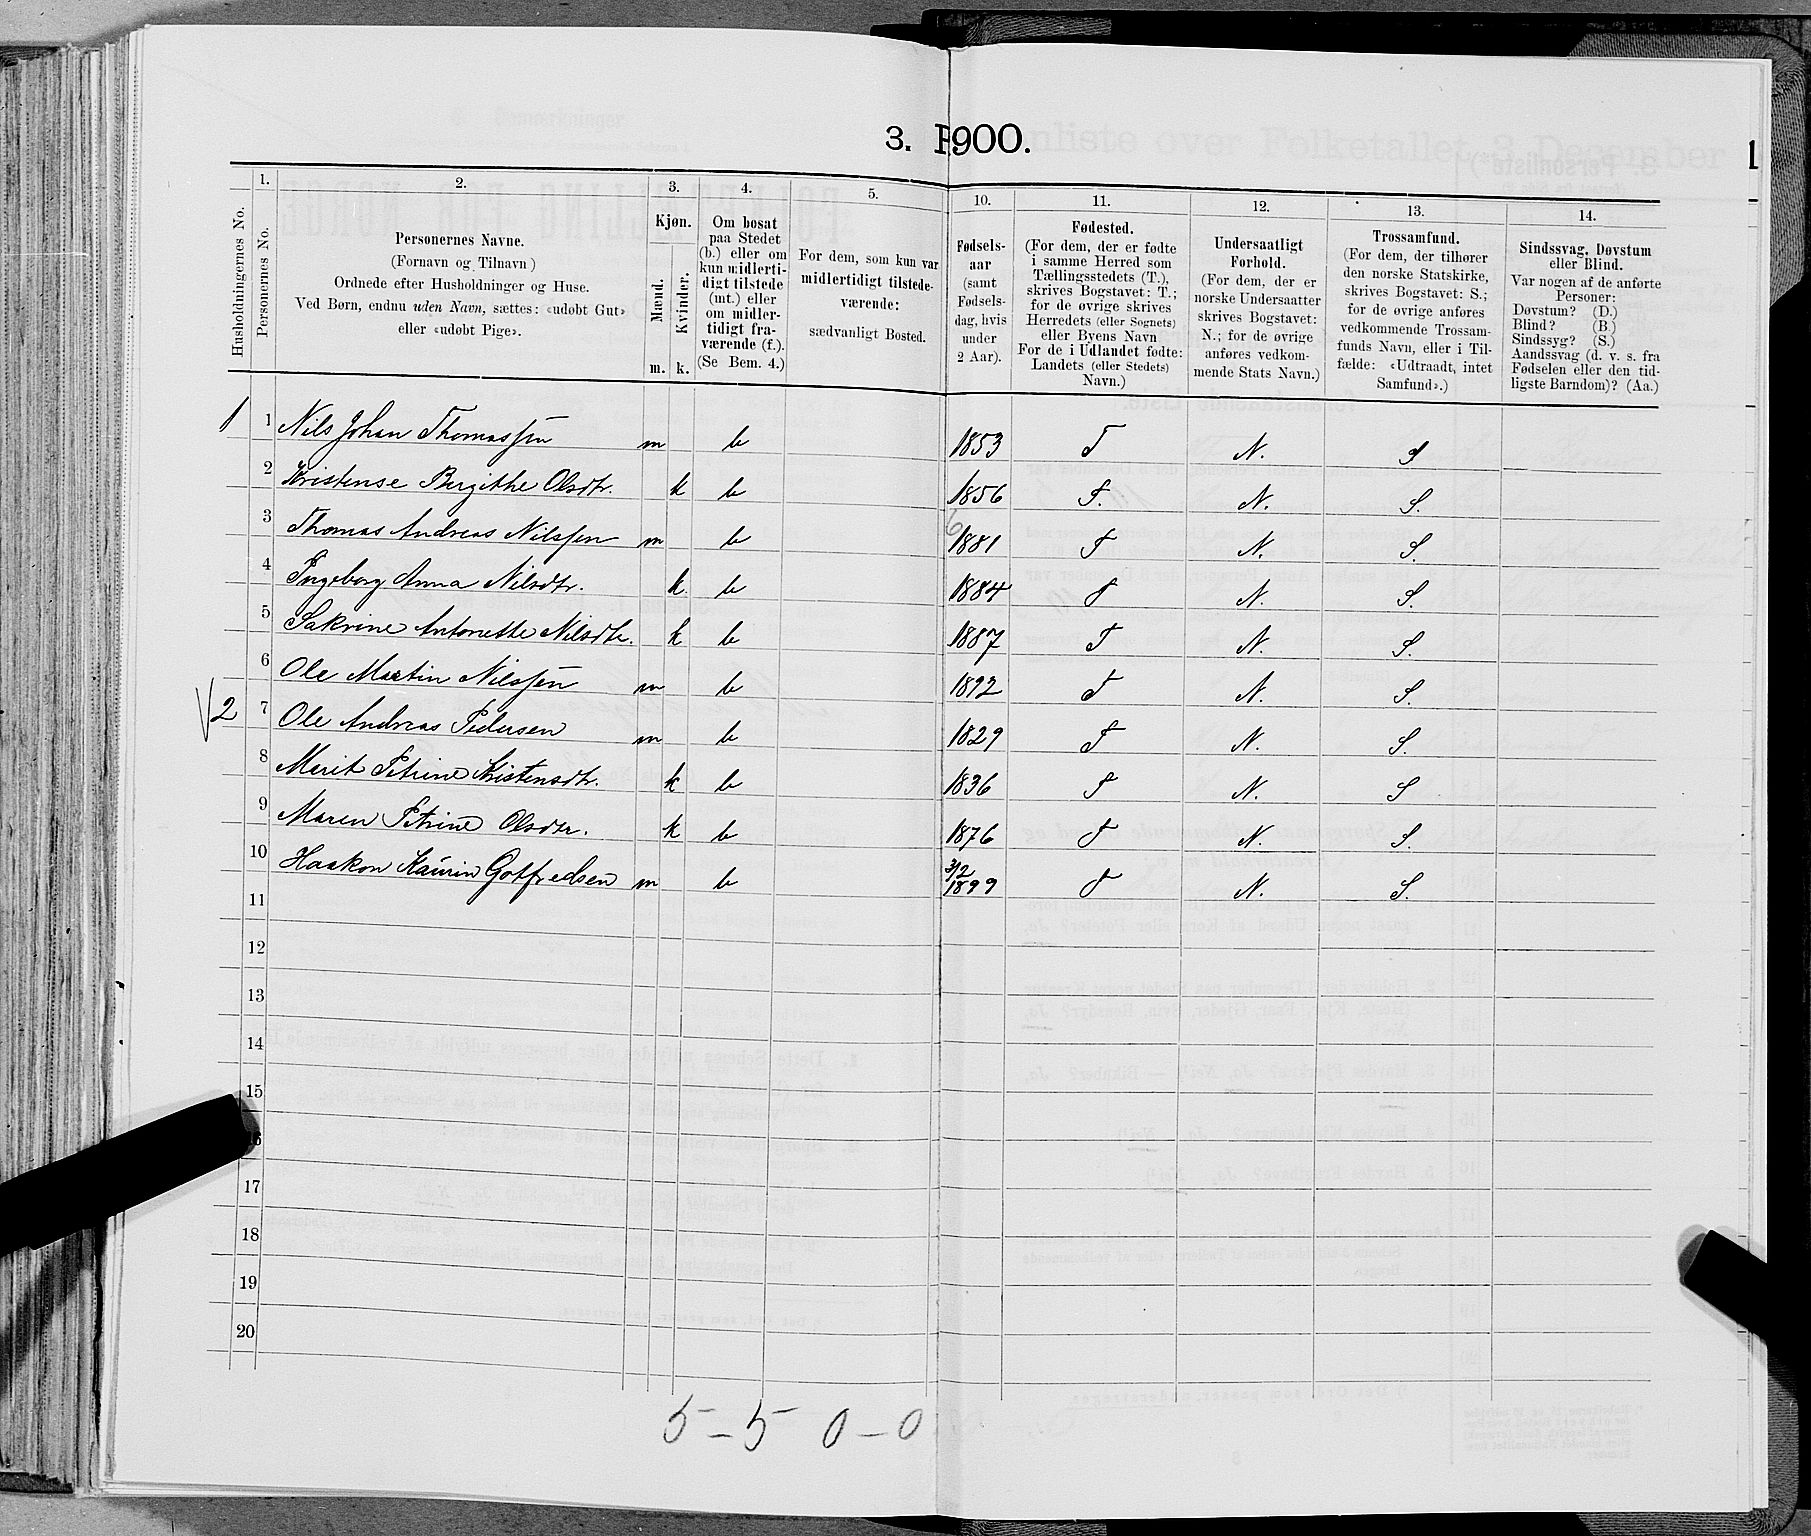 3. P 900.
1
Husholdningernes No.
1.
Personernes No.
2.
Personernes Navne.
(Fornavn og Tilnavn)
Ordnede efter Husholdninger og Huse.
Ved Børn, endnu uden Navn, sættes: «udøbt Gut»
eller «udøbt Pige».
3.
Kjøn.
Mænd.
Kvinder.
m. k.
4.
Om bosat
paa Stedet
(b.) eller om
kun midlerti-
digt tilstede
(mt.) eller
om midler-
tidigt fra-
værende (f.).
(Se Bem. 4.)
5.
For dem, som kun var
midlertidigt tilstede-
værende:
sædvanligt Bosted.
10.
Fødsels-
aar
(samt
Fødsels-
dag, hvis
under
2 Aar).
11.
Fødested.
(For dem, der er fødte
i samme Herred som
Tællingsstedets (T.),
skrives Bogstavet: T.;
for de øvrige skrives
Herredets (eller Sognets)
eller Byens Navn
For de i Udlandet fødte:
Landets (eller Stedets)
Navn.)
12.
Undersaatligt
Forhold.
(For dem, der er
norske Undersaatter
skrives Bogstavet:
N.; for de øvrige
anføres vedkom-
mende Stats Navn.)
13.
Trossamfund.
(For dem, der tilhører
den norske Statskirke,
skrives Bogstavet: S.;
for de øvrige anføres
vedkommende Trossam-
funds Navn, eller i Til-
fælde: «Udtraadt, intet
Samfund».)
14.
Sindssvag, Døvstum
eller Blind.
Var nogen af de anførte
Personer:
Døvstum? (D.)
Blind? (B.)
Sindssyg? (S.)
Aandssvag (d. v. s. fra
Fødselen eller den tid-
ligste Barndom)? (Aa.)
1 1 Nils Johan Thomassen m b 1853 T N. S
2 Kristense Birgithe Olsdtr. k b 1856 T. N. S.
3 Thomas Andreas Nilssen m b 1881 T N. S.
4 Ingeborg Anna Nilsdtr. k. b 1884 T N. S.
5 Sakrine Antonette Nilsdtr. k b 1887 T N. S.
6 Ole Martin Nilssen m b 1892 T N. S.
2 7 Ole Andreas Pedersen m b 1829 T N. S.
8 Marit Petrine Kristensdtr. k b 1836 T N. S
9 Maren Petrine Olsdtr. k b 1876 T N. S.
10 Haakon Kaurin Gotfredsen m b 3/2 1899 T N. S.
11
12
13
14
15
16
17
18
19
20
5 - 5 0 - 0